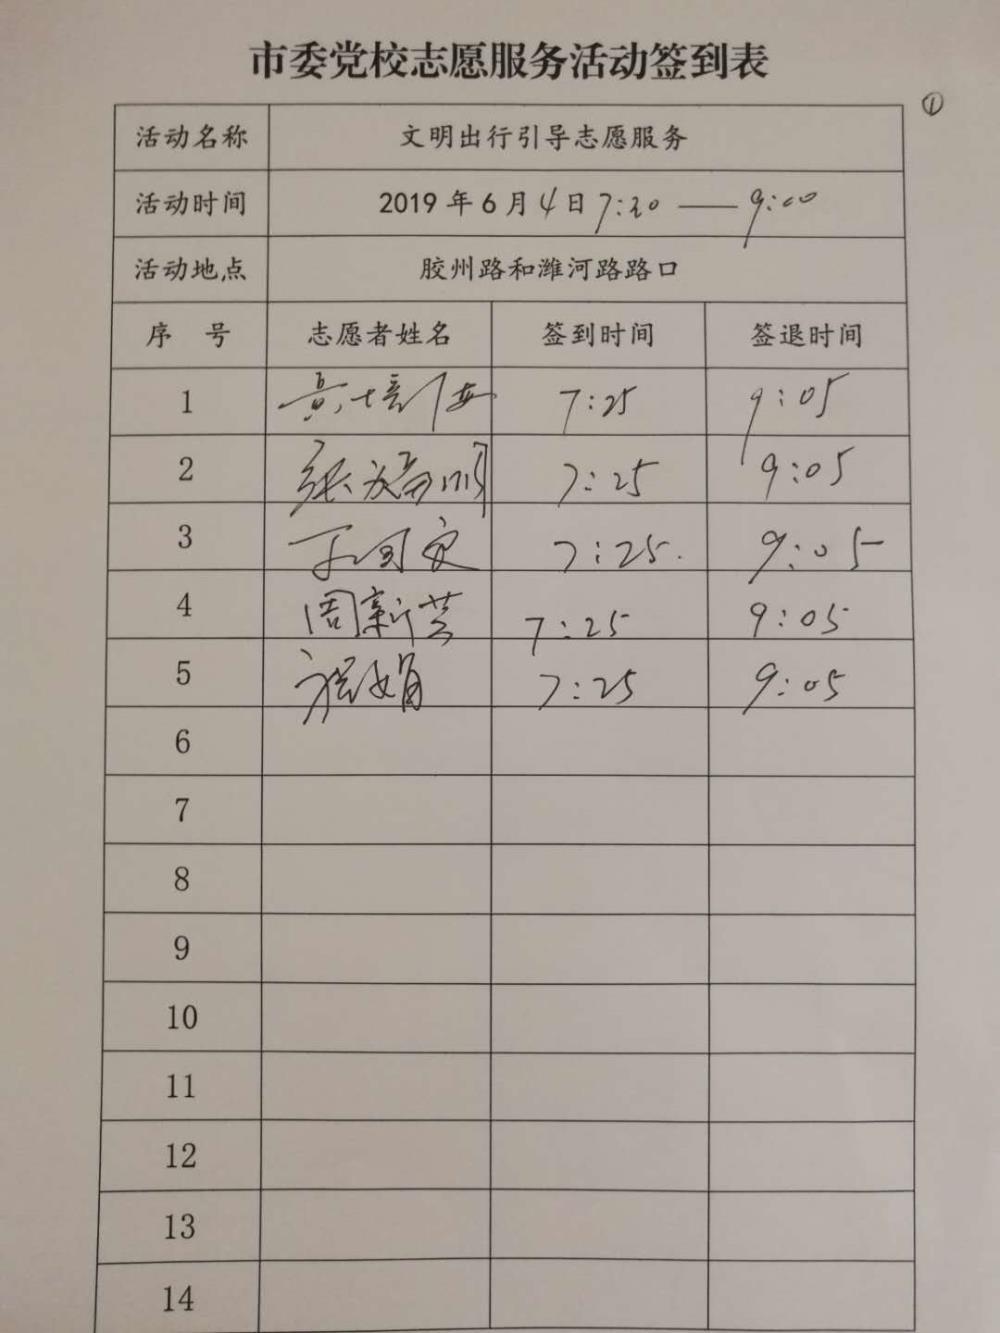 市委党校志愿服务活动签到表
①
活动名称 文明出行引导志愿服务
活动时间 2019年6月4日7:30——9:00
活动地点 胶州路和潍河路路口
序 号 志愿者姓名 签到时间 签退时间
1 7:25 9:05
2 7:25 9:05
3 7:25. 9:05
4 周新芸 7:25 9:05
5 程娟 7:25 9:05
6
7
8
9
10
11
12
13
14